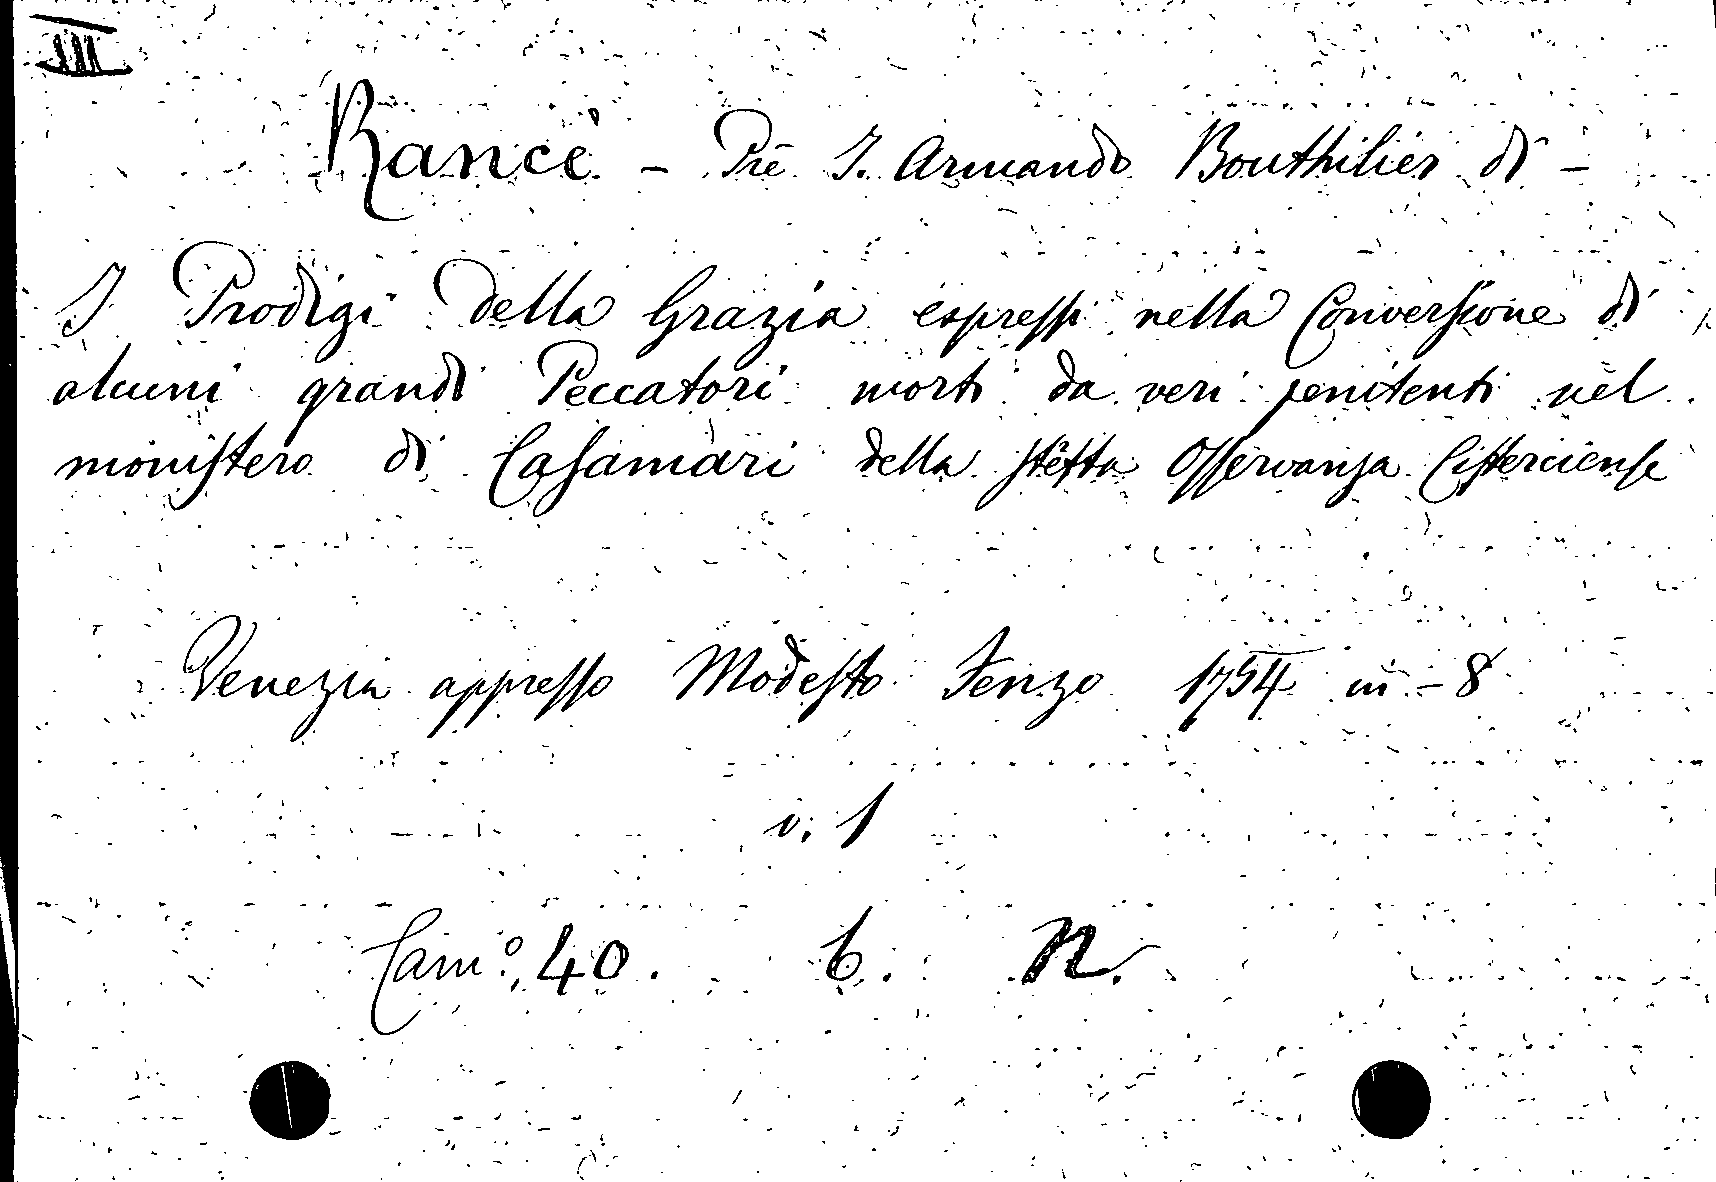 III
Rancé - Pre J. Armando Bouthilier di -
I Prodigi della Grazia espressi nella Conversione di
alcuni grandi Peccatori morti da veri penitenti nel
monistero di Casamari della stetta Osservanza Cisterciense
Venezia appresso Modesto Fenzo 1754 in-8
v. 1
Cam.º 40. b. n.